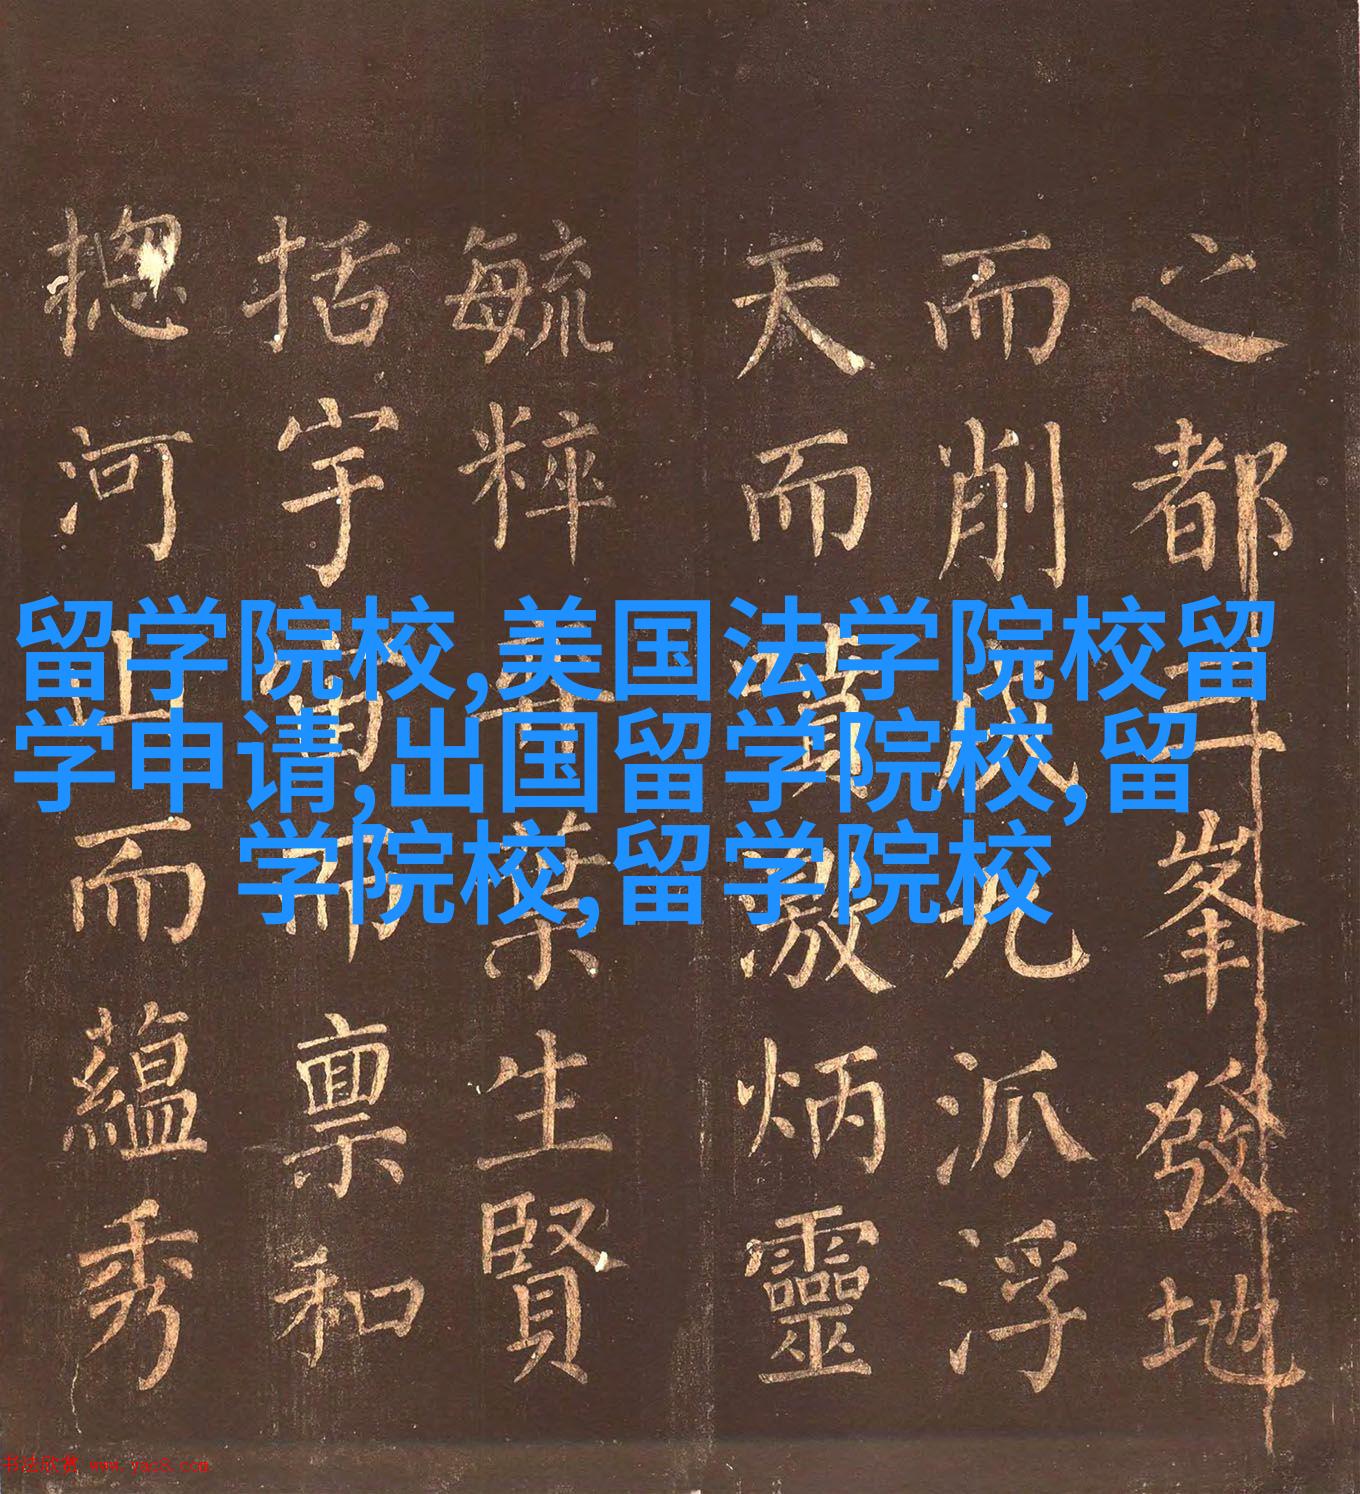 留学院校,美国法学院校留
学申请,出国留学院校,留
学院校,留学院校
之都三峯發地
而削成九派浮
天而噴激炳靈
毓粹弈葉生賢
括宇宙而稟和
揔河山而蘊秀
书法欣赏 www.yac8.com